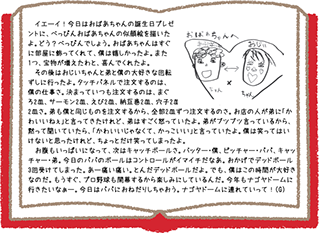 イエーイ！今日はおばあちゃんの誕生日プレゼ
ントに、べっぴんおばあちゃんの似顔絵を描いた
よ。どう？べっぴんでしょう。おばあちゃんはすぐ
に部屋に飾ってくれて、僕は嬉しかったよ。また
1つ、宝物が増えたわと、喜んでくれたよ。
その後はおじいちゃんと弟と僕の大好きな回転
ずしに行ったよ。タッチパネルで注文するのは、
僕の仕事さ。決まっていつも注文するのは、まぐ
ろ2皿、サーモン2皿、えび2皿、納豆巻2皿、穴子2
皿さ。弟も僕と同じものを注文するから、全部2皿ずつ注文するのさ。お店の人が弟に「か
わいいねぇ」と言ってきたけれど、弟はすごく怒っていたよ。弟がブツブツ言っているから、
黙って聞いていたら、「かわいいじゃなくて、かっこいい」と言っていたよ。僕は笑ってはい
けないと思ったけれど、ちょっとだけ笑ってしまったよ。
お腹もいっぱいになって、次はキャッチボールさ。バッター・僕、ピッチャー・パパ、キャッ
チャー・弟。今日のパパのボールはコントロールがイマイチだなあ。おかげでデッドボール
3回受けてしまった。あー痛い痛い。とんだデッドボールだよ。でも、僕はこの時間が大好き
なのだ。もうすぐ、プロ野球も開幕するから楽しみにしているんだ。今年もナゴヤドームに
行きたいなぁー。今日はパパにおねだりしちゃおう。ナゴヤドームに連れていって！(G)
おばあちゃんへ